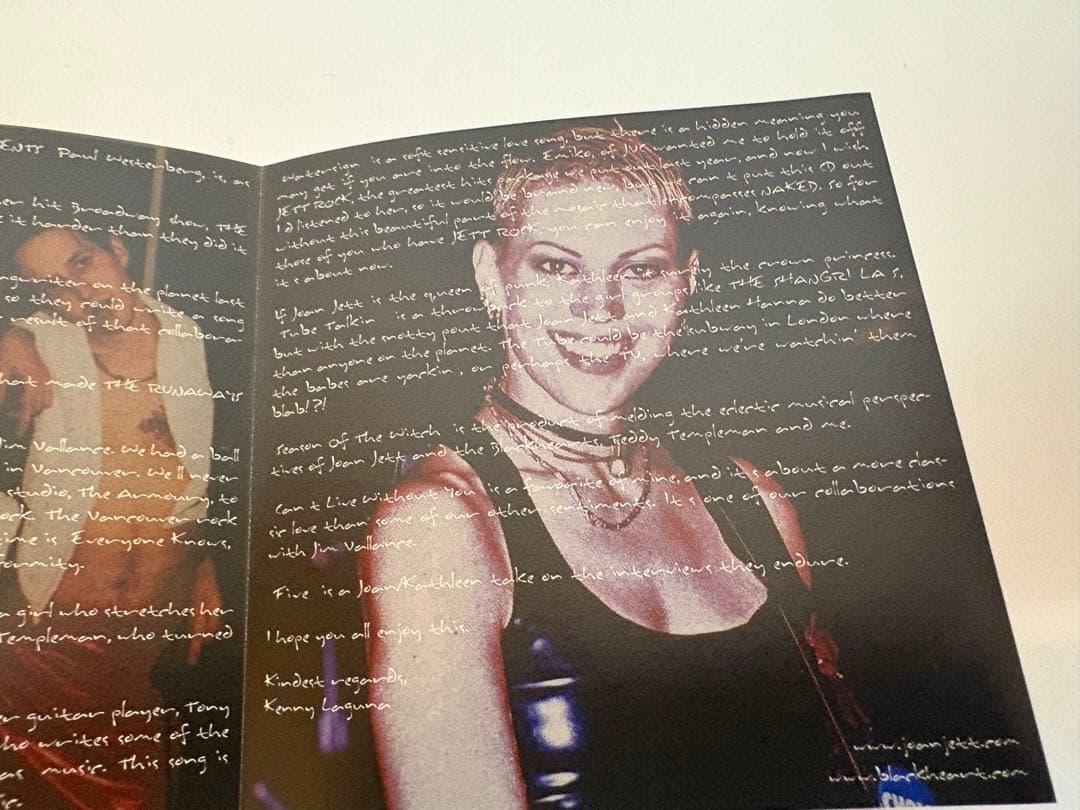 ENTT Paul Westerberg, is, as
er hit Broadway show, THE
it harder than they did it
ngwriter on the planet last
so they could write a song
result of that collabora-
hat made THE RUNAWAYS
Jim Vallance. We had a ball
in Vancouver. We ll never
studio, The Armoury, to
ock. The Vancouver rock
time is Everyone Knows,
formity.
a girl who stretches her
Templeman, who turned
er guitar player, Tony
ho writes some of the
as music. This song is
ic.
Watersign is a soft sensitive love song, but there is a hidden meaning you
may get if you are into the flow. Emiko, of JVC wanted me to hold it off
JETT ROCK, the greatest hits package in last year, and now I wish
I d listened to her, so it would be brand new, but I can t put this CD out
without this beautiful part of the mosaic that encompasses NAKED. So for
those of you who have JETT ROCK, you can enjoy it again, knowing what
it s about now.
If Joan Jett is the queen of punk, Kathleen is surely the crown princess.
Tube Talkin is a throwback to the girl groups like THE SHANGRI LA S,
but with the snotty pout that Joan Jett and Kathleen Hanna do better
than anyone on the planet. The Tube could be the subway in London where
the babes are yackin , or perhaps the TV, where we're watchin' them
blab!?!
Season Of The Witch is the product of melding the eclectic musical perspec-
tives of Joan Jett and the Blackhearts, Teddy Templeman and me.
Can t Live Without You is a favorite of mine, and it s about a more clas-
sic love than some of our other sentiments. It s one of our collaborations
with Jim Vallance.
Five is a Joan/Kathleen take on the interviews they endure.
I hope you all enjoy this.
Kindest regards,
Kenny Laguna
www.joanjett.com
www.blackheart.com